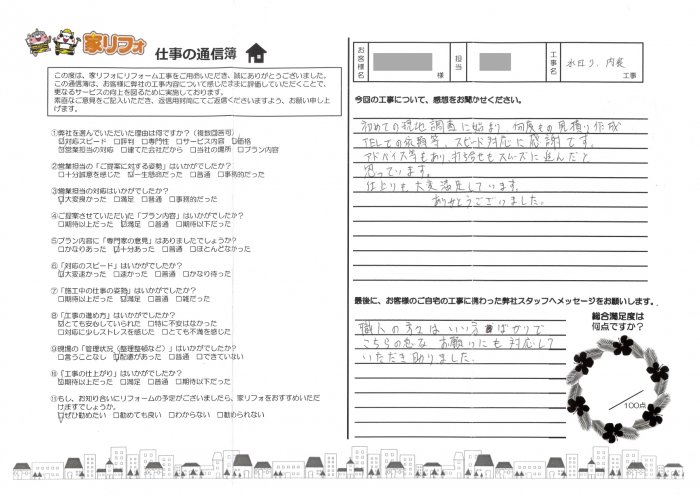 家リフォ 仕事の通信簿
この度は、家リフォにリフォーム工事をご用命いただき、誠にありがとうございました。
この通信簿は、お客様に弊社の工事内容について感じたままに評価していただくことで、
更なるサービスの向上を図るために実施しております。
素直なご意見をご記入いただき、返信用封筒にてご返信くださいますよう、お願い申し上げます。
①弊社を選んでいただいた理由は何ですか？（複数回答可）
☑対応スピード □評判 □専門性 □サービス内容 ☑価格
☑営業担当の対応 □建てた会社だから □当社の場所 □プラン内容
②営業担当の「ご提案に対する姿勢」はいかがでしたか？
□十分誠意を感じた ☑一生懸命だった □普通 □事務的だった
③営業担当の対応はいかがでしたか？
☑大変良かった □満足 □普通 □事務的だった
④ご提案させていただいた「プラン内容」はいかがでしたか？
□期待以上だった ☑満足 □普通 □期待以下だった
⑤プラン内容に「専門家の意見」はありましたでしょうか？
□かなりあった ☑十分あった □普通 □ほとんどなかった
⑥「対応のスピード」はいかがでしたか？
☑大変速かった □速かった □普通 □かなり待った
⑦「施工中の仕事の姿勢」はいかがでしたか？
□期待以上だった ☑満足 □普通 □雑だった
⑧「工事の進め方」はいかがでしたか？
☑とても安心していられた □特に不安はなかった
□対応に少しストレスを感じた □とても不満を感じた
⑨現場の「管理状況（整理整頓など）」はいかがでしたか？
□言うことなし ☑配慮があった □普通 □できていない
⑩「工事の仕上がり」はいかがでしたか？
☑期待以上だった □満足 □普通 □期待以下だった
⑪もし、お知り合いにリフォームの予定がございましたら、家リフォをおすすめいただけますでしょうか。
☑ぜひ勧めたい □勧めても良い □わからない □勧められない
お客様名 様 担当 工事名 水回り、内装 工事
今回の工事について、感想をお聞かせください。
初めての現地調査に始まり、何度もの見積り作成
TELでの依頼等、スピード対応に感謝です。
アドバイス等もあり、打ち合せもスムーズに進んだと
思っています。
仕上りも大変満足しています。
ありがとうございました。
最後に、お客様のご自宅の工事に携わった弊社スタッフへメッセージをお願いします。
職人の方々はいい方ばかりで
こちらの急なお願いにも対応して
いただき助りました。
総合満足度は
何点ですか？
／100点